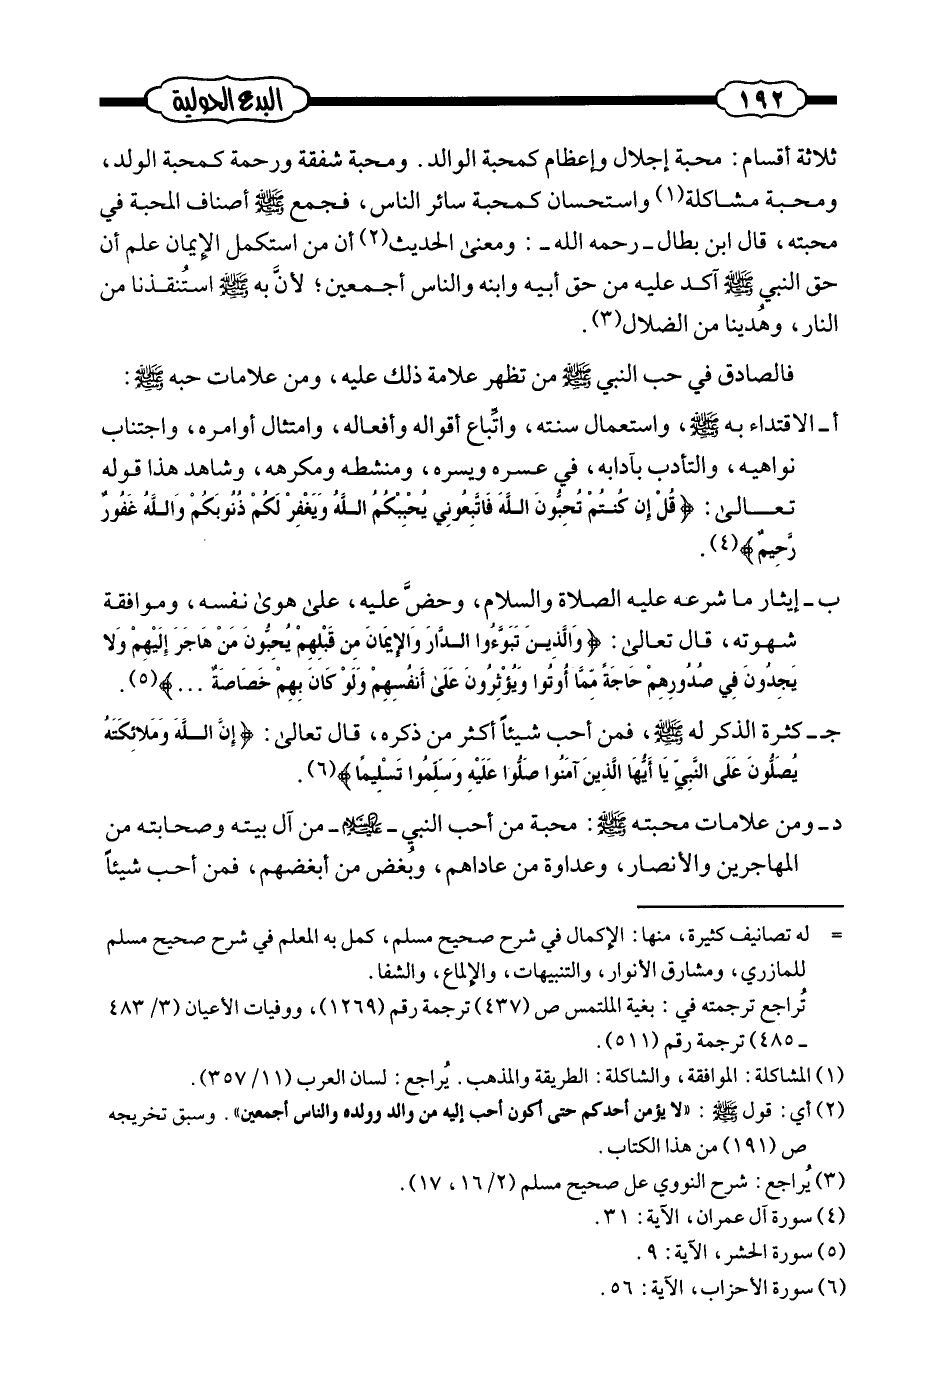 ١٩٢
البدع الحولية
ثلاثة أقسام: محبة إجلال وإعظام كمحبة الوالد. ومحبة شفقة ورحمة كمحبة الولد،
ومحبة مشاكلة(١) واستحسان كمحبة سائر الناس، فجمع ﷺ أصناف المحبة في
محبته، قال ابن بطال ـ رحمه الله ـ : ومعنى الحديث(٢) أن من استكمل الإيمان علم أن
حق النبي ﷺ آكد عليه من حق أبيه وابنه والناس أجمعين؛ لأنَّ به ﷺ استُنقذنا من
النار، وهُدينا من الضلال(٣).
فالصادق في حب النبي ﷺ من تظهر علامة ذلك عليه، ومن علامات حبه ﷺ:
أ ـ الاقتداء به ﷺ، واستعمال سنته، واتِّباع أقواله وأفعاله، وامتثال أوامره، واجتناب
نواهيه، والتأدب بآدابه، في عسره ويسره، ومنشطه ومكرهه، وشاهد هذا قوله
تعالى: ﴿قُلْ إِن كُنتُمْ تُحِبُّونَ اللَّهَ فَاتَّبِعُونِي يُحْبِبْكُمُ اللَّهُ وَيَغْفِرْ لَكُمْ ذُنُوبَكُمْ وَاللَّهُ غَفُورٌ
رَّحِيمٌ﴾(٤).
ب ـ إيثار ما شرعه عليه الصلاة والسلام، وحضَّ عليه، على هوى نفسه، وموافقة
شهوته، قال تعالى: ﴿وَالَّذِينَ تَبَوَّءُوا الدَّارَ وَالإِيمَانَ مِن قَبْلِهِمْ يُحِبُّونَ مَنْ هَاجَرَ إِلَيْهِمْ وَلا
يَجِدُونَ فِي صُدُورِهِمْ حَاجَةً مِّمَّا أُوتُوا وَيُؤْثِرُونَ عَلَىٰ أَنفُسِهِمْ وَلَوْ كَانَ بِهِمْ خَصَاصَةٌ ...﴾(٥).
جـ ـ كثرة الذكر له ﷺ، فمن أحب شيئاً أكثر من ذكره، قال تعالى: ﴿إِنَّ اللَّهَ وَمَلائِكَتَهُ
يُصَلُّونَ عَلَى النَّبِيِّ يَا أَيُّهَا الَّذِينَ آمَنُوا صَلُّوا عَلَيْهِ وَسَلِّمُوا تَسْلِيمًا﴾(٦).
د ـ ومن علامات محبته ﷺ: محبة من أحب النبي ـ عليه السلام ـ من آل بيته وصحابته من
المهاجرين والأنصار، وعداوة من عاداهم، وبُغض من أبغضهم، فمن أحب شيئاً
= له تصانيف كثيرة، منها: الإكمال في شرح صحيح مسلم، كمل به المعلم في شرح صحيح مسلم
للمازري، ومشارق الأنوار، والتنبيهات، والإلماع، والشفا.
تُراجع ترجمته في: بغية الملتمس ص (٤٣٧) ترجمة رقم (١٢٦٩)، ووفيات الأعيان (٣/ ٤٨٣
ـ ٤٨٥) ترجمة رقم (٥١١).
(١) المشاكلة: الموافقة، والشاكلة: الطريقة والمذهب. يُراجع: لسان العرب (١١/ ٣٥٧).
(٢) أي: قول ﷺ : «لا يؤمن أحدكم حتى أكون أحب إليه من والد وولده والناس أجمعين». وسبق تخريجه
ص (١٩١) من هذا الكتاب.
(٣) يُراجع: شرح النووي عل صحيح مسلم (٢/ ١٦، ١٧).
(٤) سورة آل عمران، الآية: ٣١.
(٥) سورة الحشر، الآية: ٩.
(٦) سورة الأحزاب، الآية: ٥٦.